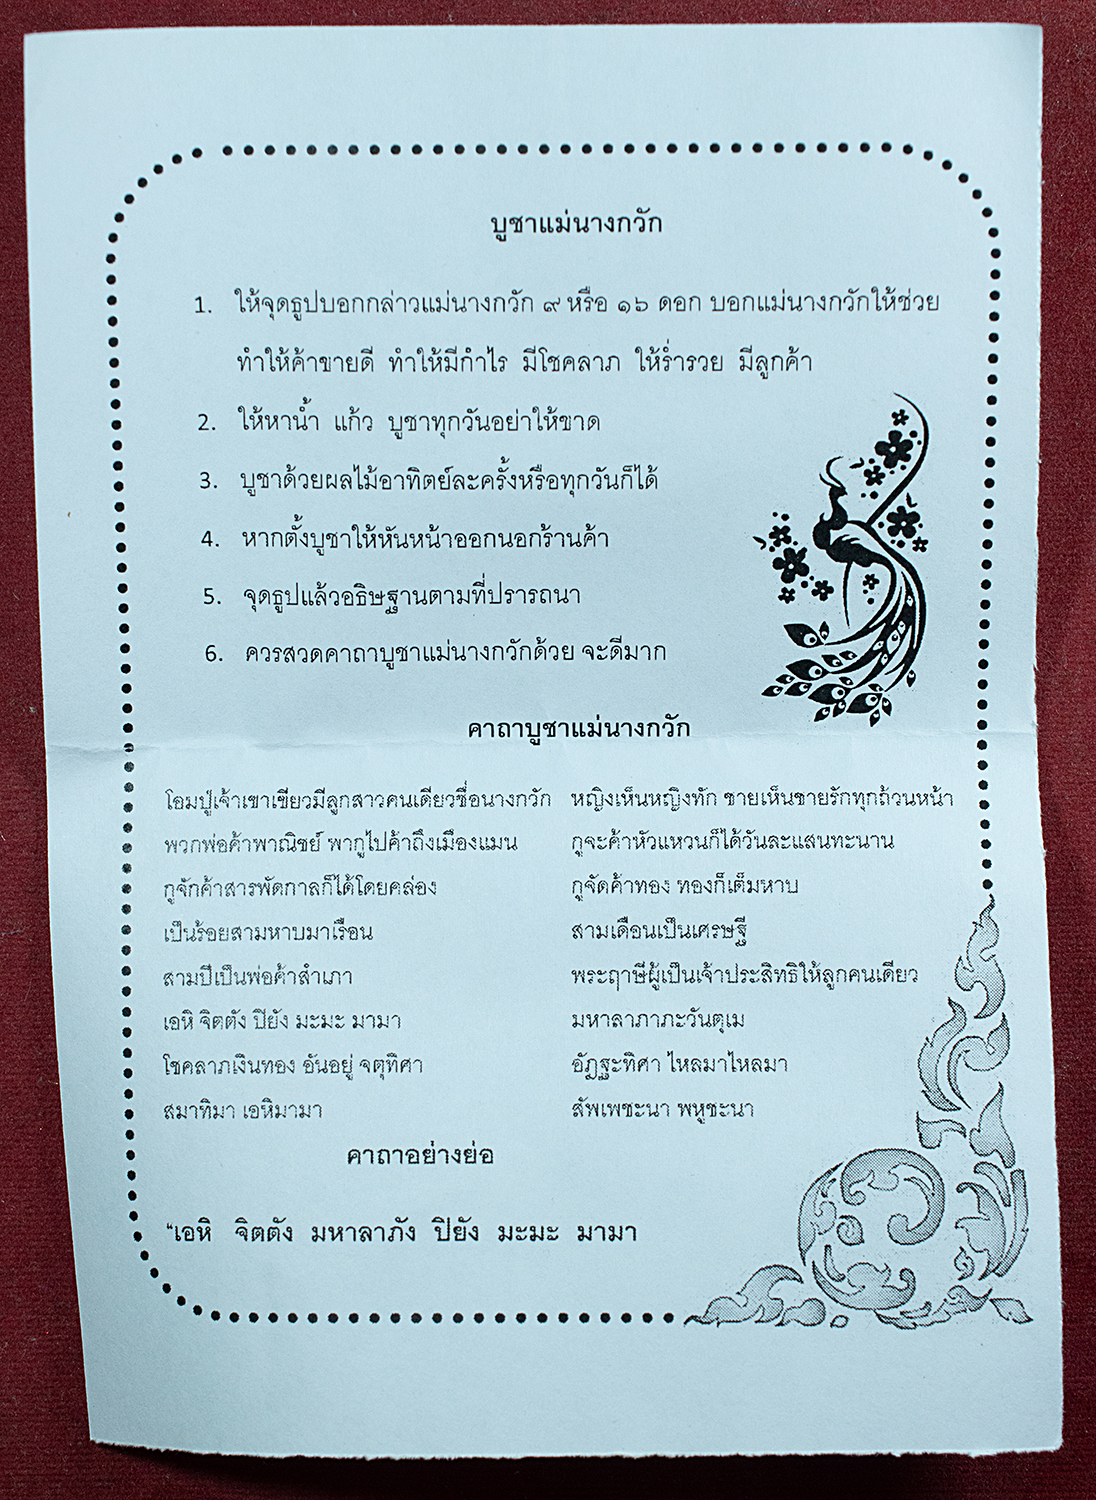 บูชาแม่นางกวัก
1. ให้จุดธูปบอกกล่าวแม่นางกวัก ๙ หรือ ๑๖ ดอก บอกแม่นางกวักให้ช่วย
ทำให้ค้าขายดี ทำให้มีกำไร มีโชคลาภ ให้ร่ำรวย มีลูกค้า
2. ให้หาน้ำ แก้ว บูชาทุกวันอย่าให้ขาด
3. บูชาด้วยผลไม้อาทิตย์ละครั้งหรือทุกวันก็ได้
4. หากตั้งบูชาให้หันหน้าออกนอกร้านค้า
5. จุดธูปแล้วอธิษฐานตามที่ปรารถนา
6. ควรสวดคาถาบูชาแม่นางกวักด้วย จะดีมาก
คาถาบูชาแม่นางกวัก
โอมปู่เจ้าเขาเขียวมีลูกสาวคนเดียวชื่อนางกวัก หญิงเห็นหญิงทัก ชายเห็นชายรักทุกถ้วนหน้า
พวกพ่อค้าพาณิชย์ พากูไปค้าถึงเมืองแมน กูจะค้าหัวแหวนก็ได้วันละแสนทะนาน
กูจักค้าสารพัดกาลก็ได้โดยคล่อง กูจัดค้าทอง ทองก็เต็มหาบ
เป็นร้อยสามหาบมาเรือน สามเดือนเป็นเศรษฐี
สามปีเป็นพ่อค้าสำเภา พระฤาษีผู้เป็นเจ้าประสิทธิให้ลูกคนเดียว
เอหิ จิตตัง ปิยัง มะมะ มามา มหาลาภาภะวันตุเม
โชคลาภเงินทอง อันอยู่ จตุทิศา อัฏฐะทิศา ไหลมาไหลมา
สมาทิมา เอหิมามา สัพเพชะนา พหูชะนา
คาถาอย่างย่อ
“เอหิ จิตตัง มหาลาภัง ปิยัง มะมะ มามา